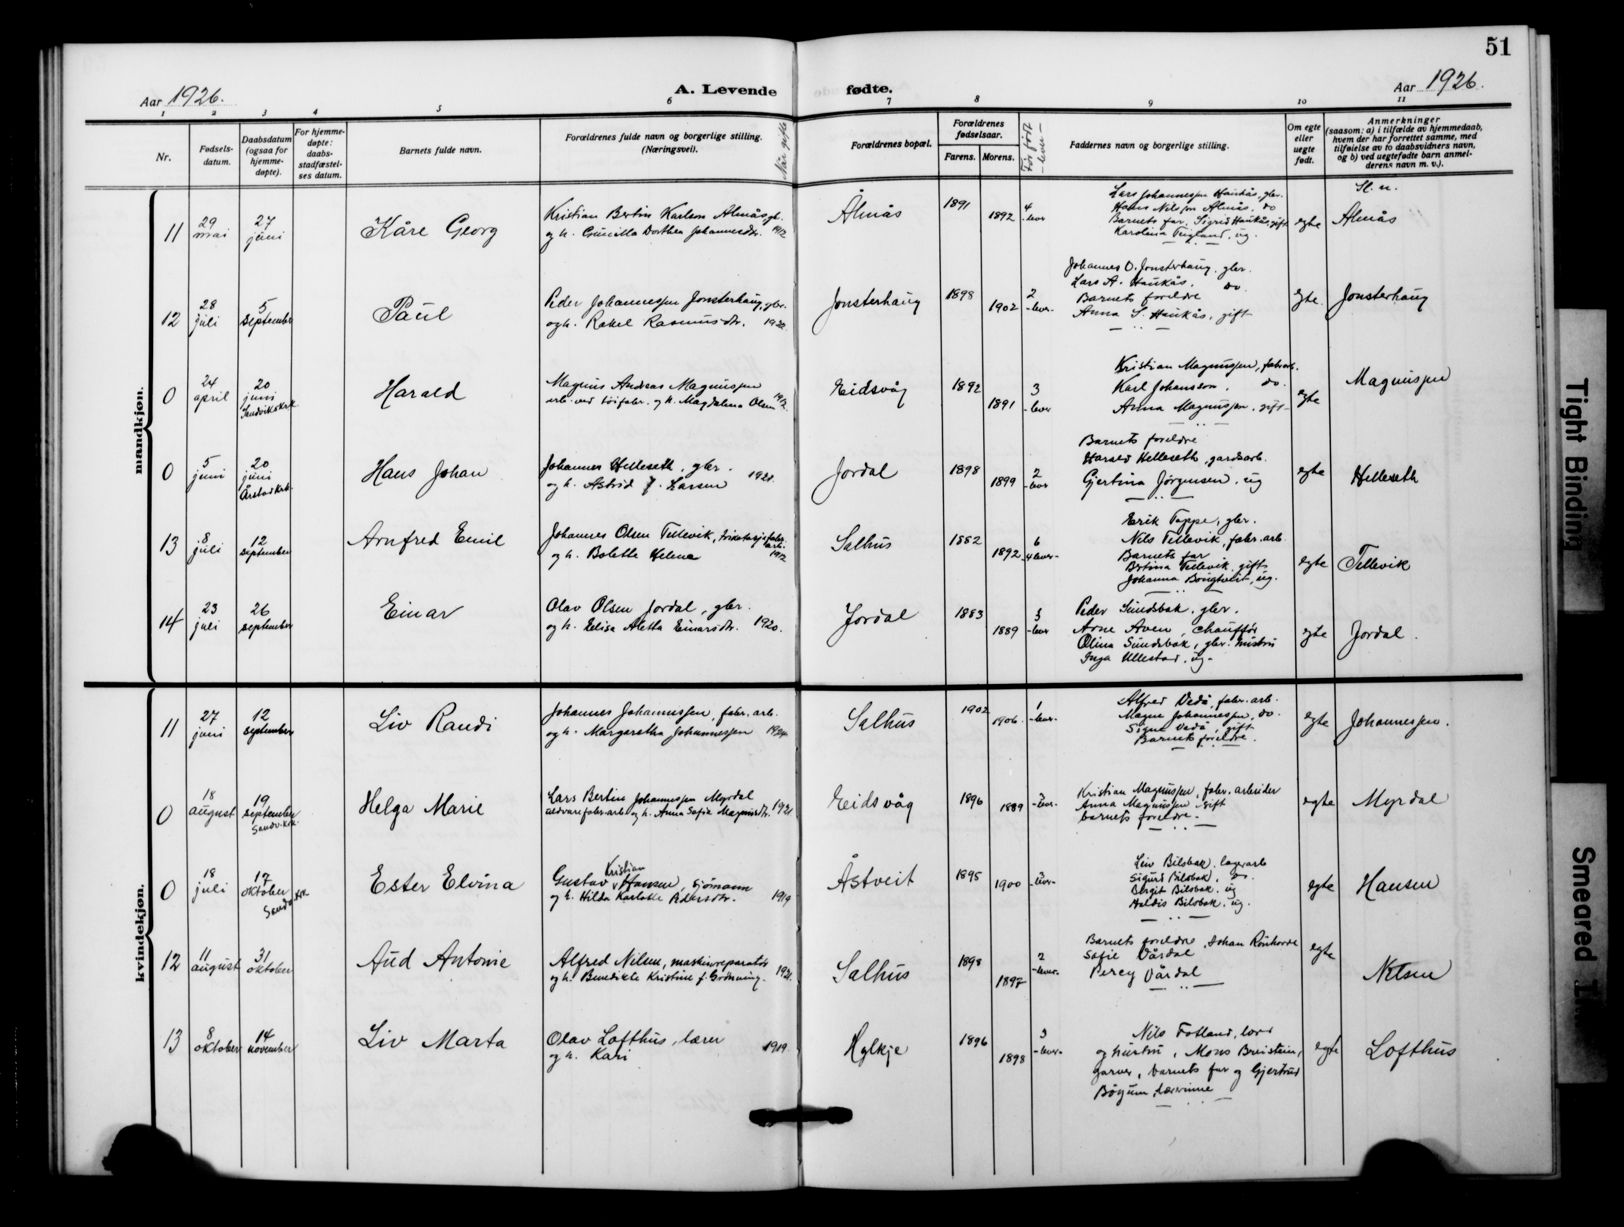 51
Aar 1926.
A. Levende fødte.
Aar 1926.
1 2 3 4 5 6 7 8 9 10 11
Nr.
Fødsels-
datum.
Daabsdatum
(ogsaa for
hjemme-
døpte).
For hjemme-
døpte:
daabs-
stadfæstel-
ses datum.
Barnets fulde navn.
Forældrenes fulde navn og borgerlige stilling.
(Næringsvei).
Når gifte
Forældrenes bopæl.
Forældrenes
fødselsaar.
Farens. Morens.
Faddernes navn og borgerlige stilling.
Om egte
eller
uegte
født.
Anmerkninger
(saasom: a) i tilfælde av hjemmedaab,
hvem der har forrettet samme, med
tilføielse av to daabsvidners navn,
og b) ved uegtefødte barn anmel-
derens navn m. v.).
Sl. n.
mandkjøn.
11 29 mai 27 juni Kåre Georg
Kristian Bertin Karlsen Almås gl.
og h. Gunilla Dorthea Johannesdtr. 1912
Almås 1891 1892 4 -lever
Lars Johannessen Haukås, gbr.
Hans Nilsen Almås, do
Barnets far, Sigrid Haukås, gift
Karolina Tugland, ug.
egte Almås
12 28 juli 5 september Paul
Peder Johannessen Jonsterhaug, gbr.
og h. Rakel Rasmusdtr. 1922
Jonsterhaug 1898 1902 2 -lever-
Johannes O. Jonsterhaug, gbr.
Lars A. Haukås, do.
Barnets foreldre
Anna S. Haukås, gift
egte. Jonsterhaug
0 24 april 20 juni Sandvikskrk Harald
Magnus Andreas Magnussen
arb. ved tøifabr. og h. Magdalena Olsen 1912
Eidsvåg 1892 1891 3 -lever
Kristian Magnussen, fabrarb.
Karl Johansson, do.
Anna Magnussen, gift
egte Magnussen
0 5 juni 20 juni Årstad krk. Hans Johan
Johannes Helleseth, gbr.
og h. Astrid f. Larsen 1921.
Jordal 1898 1899 2 -lever
Barnets foreldre
Harald Helleseth, gardsarb.
Gjertina Jørgensen, ug
egte Helleseth
13 8 juli 12 september Arnfred Emil
Johannes Olsen Tellevik, trikotasjefabr. arb.
og h. Bolette Helena 1912
Salhus 1882 1892 6 4 lever-
Erik Toppe, gbr.
Nils Tellevik, fabr. arb.
Barnets far
Bertina Tellevik, gift
Johanna Bongtveit, ug.
egte Tellevik
14 23 juli 26 september Einar
Olav Olsen Jordal, gbr.
og h. Elisa Aletta Einarsdtr. 1920.
Jordal 1883 1889 3 -lever
Peder Sundsbak, gbr.
Arne Aven, chauffør
Olina Sundsbak, gbr. hustru
Inga Ullestad, ug-
egte Jordal.
kvindekjøn.
11 27 juni 12 september Liv Randi
Johannes Johannessen, fabr. arb.
og h. Margaretha Johannessen 1924
Salhus 1902 1906. 1 -lever.
Alfred Dedå, fabr. arb.
Magne Johannessen, do.
Signe Dedå, gift
Barnets foreldre.
egte Johannessen.
0 18 august 19 september Sandv. krk. Helga Marie
Lars Bertin Johannessen Myrdal
uldvarefabr. arb. og h. Anna Sofia Magnusdtr. 1921
Eidsvåg 1896 1889 -lever.
Kristian Magnussen, fabr. arbeider
Anna Magnussen, gift
barnets foreldre-
egte Myrdal
0 18 juli 17 oktober Sandv. krk Ester Elvina
Gustav Kristian Hansen, sjømann
og h. Hilda Karlotte Pedersdtr. 1919
Åstveit 1895 1900 -lever-
Leiv Bilsbak, lagerarb
Sigurd Bilsbak, do.
Bergit Bilsbak, ug
Haldis Bilsbak, ug.
egte Hansen
12 11 august 31 oktober Aud Antonie
Alfred Nilsen, maskinreparatør
og h. Benedikte Kristine f. Grønning. 1921.
Salhus 1898 1897 2 -lever.
Barnets foreldre, Johan Rønhovde
Sofie Vårdal
Percy Vårdal
egte Nilsen
13 8 oktober 14 november Liv Marta
Olav Lofthus, lærer
og h. Kari 1919.
Hylkje 1896 1898 3 -lever-
Nils Fotland, lærer
og hustru, Mons Breistein,
garver, barnets far og Gjertrud
Bøyum, lærerinne
egte Lofthus
Tight Binding
Smeared